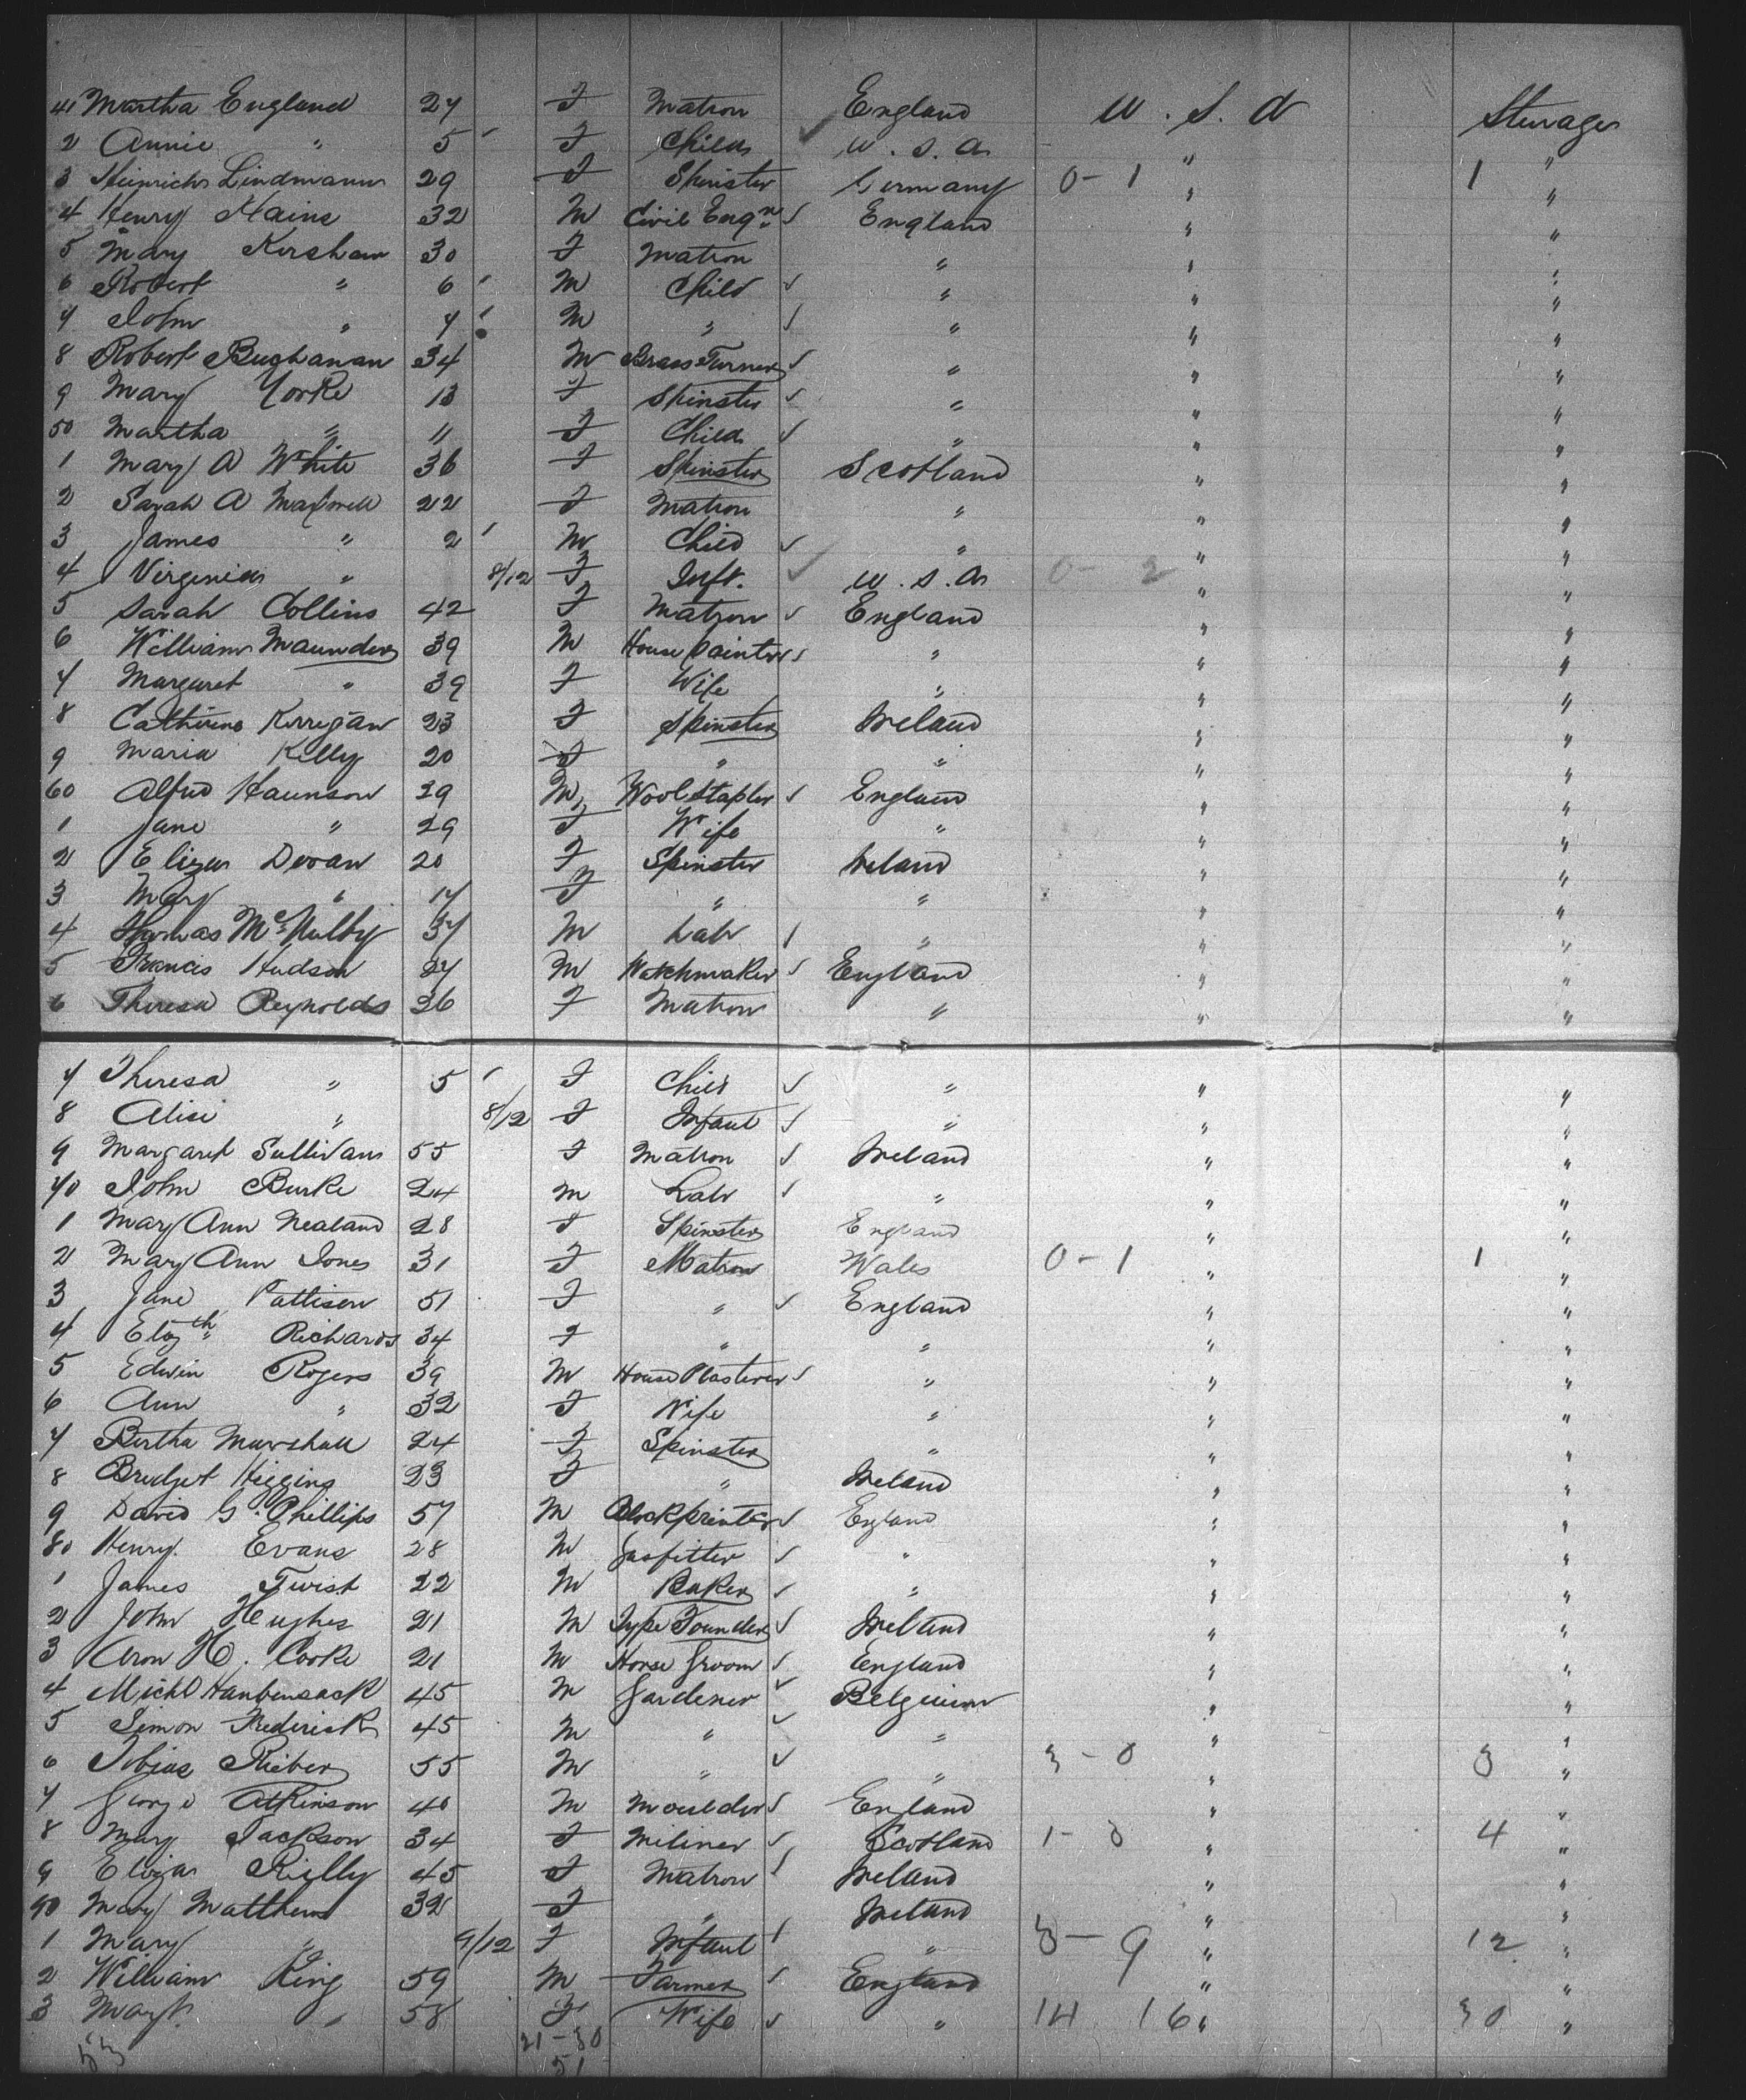 41 Martha England 27 F Matron England U. S. A Steerage
2 Annie " 5 ' F Child ✓ U. S. A " "
3 Lindmann 29 F Spinster Germany 0-1 " 1 "
4 Henry Mains 32 M Civil Engr ✓ England " "
5 Mary Kershaw 30 F Matron " " "
6 Robert " 6 ' M Child ✓ " " "
7 John " 7 ' M " ✓ " " "
8 Robert Buchanan 34 M Brass Turner ✓ " " "
9 Mary Yorke 13 F Spinster ✓ " " "
50 Martha " 11 F Child ✓ " " "
1 Mary A White 36 F Spinster Scotland " "
2 Sarah A Maxwell 22 F Matron " " "
3 James " 2 ' M Child ✓ " " "
4 Virginia " 8/12 F Inft. ✓ U. S. A 0-2 " "
5 Sarah Collins 42 F Matron ✓ England " "
6 William Maunders 39 M House painter ✓ " " "
7 Margaret " 39 F Wife " " "
8 Catherine Kerrigan 23 F Spinster Ireland " "
9 Maria Kelly 20 F " " " "
60 Alfred Haunson 29 M Wool Stapler ✓ England " "
1 Jane " 29 F Wife " " "
2 Eliza Devan 20 F Spinster Ireland " "
3 Mary " 17 F " " " "
4 Thomas McNulty 37 M Labr ✓ " " "
5 Francis Hudson 27 M Watchmaker ✓ England " "
6 Theresa Reynolds 26 F Matron " " "
7 Theresa " 5 ' F Child ✓ " " "
8 Alice " 8/12 F Infant ✓ " " "
9 Margaret Sullivan 55 F Matron ✓ Ireland " "
70 John Burke 24 M Labr ✓ " " "
1 Mary Ann Nealand 28 F Spinster England " "
2 Mary Ann Jones 31 F Matron Wales 0-1 " 1 "
3 Jane Pattison 51 F " ✓ England " "
4 Elizth Richards 34 F " " " "
5 Edwin Rogers 39 M House Plasterer ✓ " " "
6 Ann " 32 F Wife " " "
7 Bertha Marshall 24 F Spinster " " "
8 Bridget Higgins 23 F " Ireland " "
9 David G. Phillips 57 M Blockprinter ✓ England " "
80 Henry Evans 28 M Gasfitter ✓ " " "
1 James Twist 22 M Baker ✓ " " "
2 John Hughes 21 M Type Founder ✓ Ireland " "
3 Aron H. Cooke 21 M Horse Groom ✓ England " "
4 Michl Hanbensack 45 M Gardener ✓ Belgium " "
5 Simon Frederick 45 M " ✓ " " "
6 Tobias Rieber 55 M " ✓ " 3-0 " 3 "
7 George Atkinson 40 M Moulder ✓ England " "
8 Mary Jackson 34 F Miliner ✓ Scotland 1-0 " 4 "
9 Eliza Reilly 45 F Matron ✓ Ireland " "
90 Mary Matthews 32 F " Ireland " "
1 Mary " 9/12 F Infant ✓ " 3-9 " 12 "
2 William King 59 M Farmer ✓ England " "
3 Mary " 58 F Wife ✓ " 14 16 " 30 "
53 21-30
51